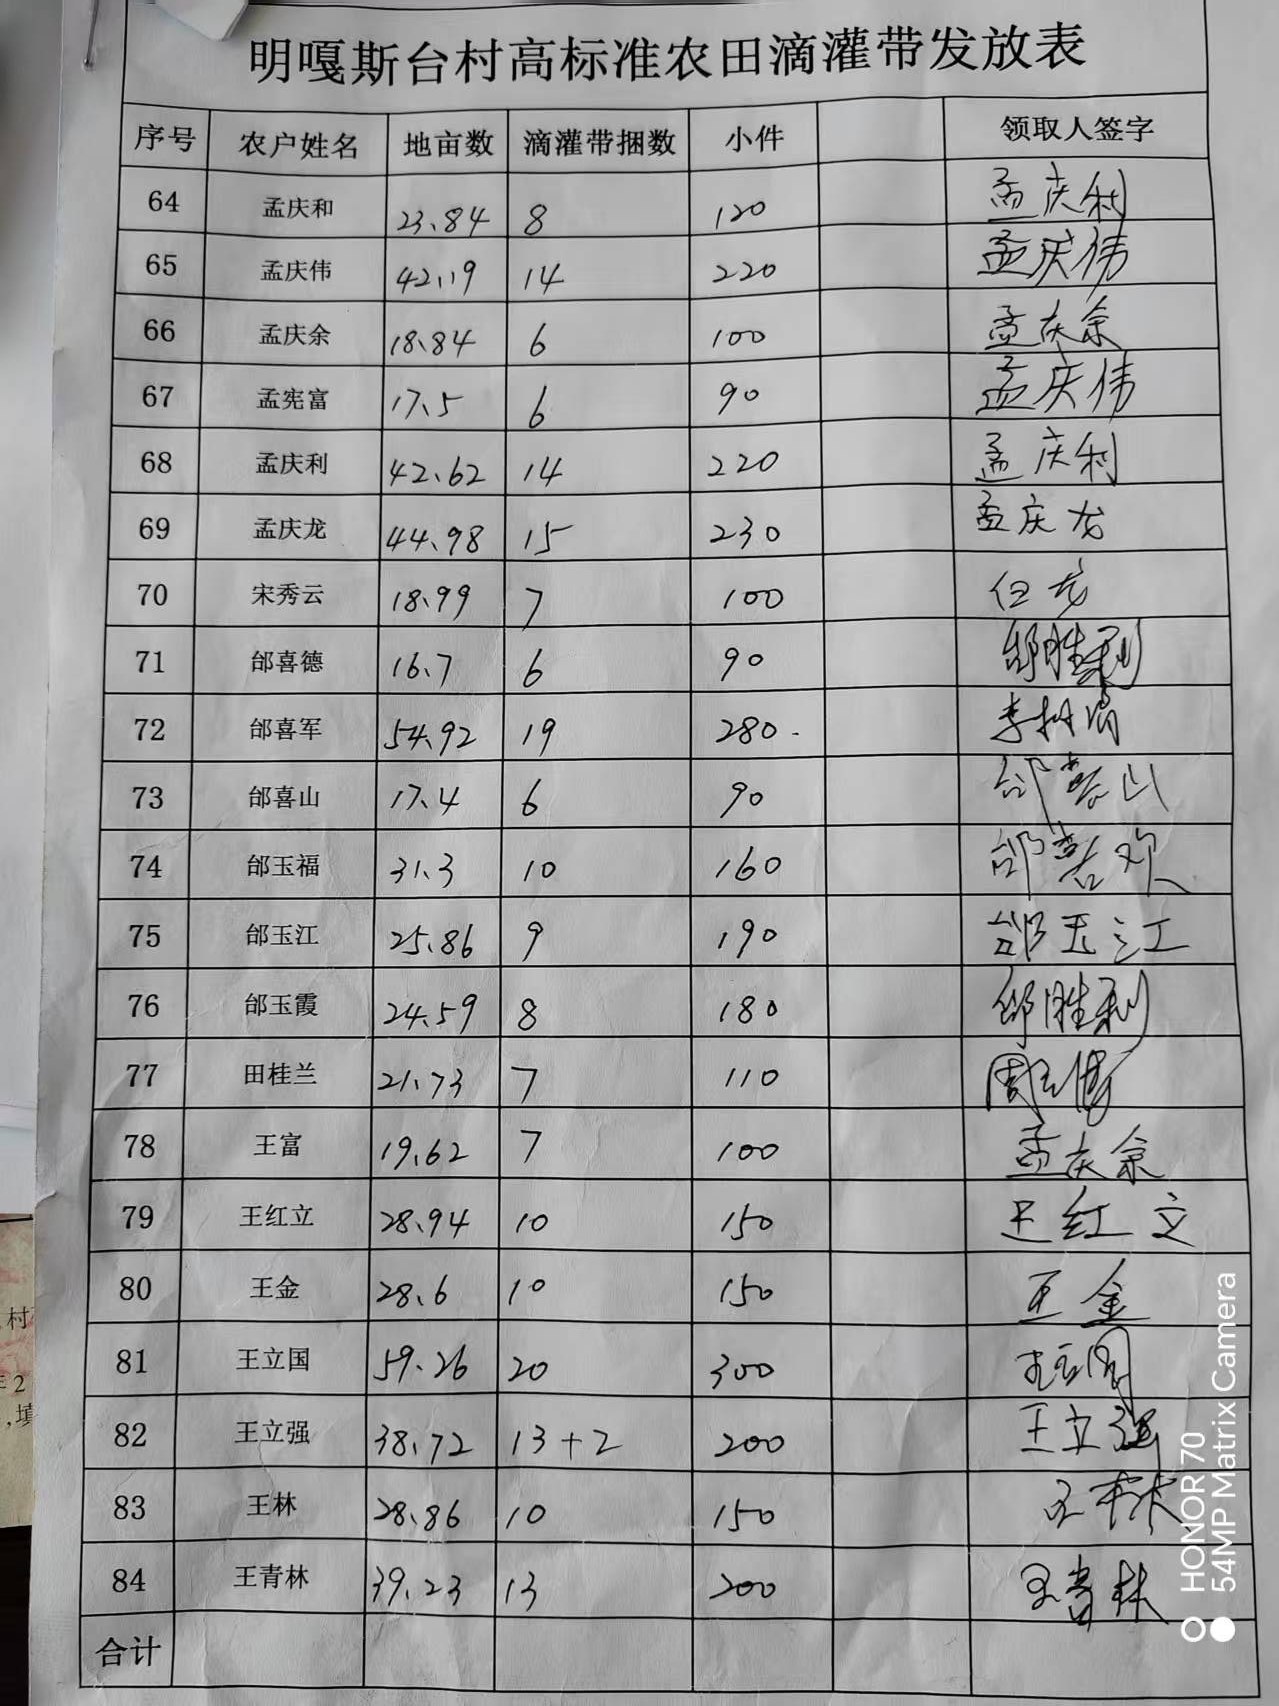 明嘎斯台村高标准农田滴灌带发放表
序号 农户姓名 地亩数 滴灌带捆数 小件 领取人签字
64 孟庆和 23.84 8 120 孟庆利
65 孟庆伟 42.19 14 220 孟庆伟
66 孟庆余 18.84 6 100 孟庆余
67 孟宪富 17.5 6 90 孟庆伟
68 孟庆利 42.62 14 220 孟庆利
69 孟庆龙 44.98 15 230 孟庆龙
70 宋秀云 18.99 7 100
71 邰喜德 16.7 6 90 邰胜利
72 邰喜军 54.92 19 280
73 邰喜山 17.4 6 90 邰喜山
74 邰玉福 31.3 10 160 邰喜欢
75 邰玉江 25.86 9 190 邰玉江
76 邰玉霞 24.59 8 180 邰胜利
77 田桂兰 21.73 7 110
78 王富 19.62 7 100 孟庆余
79 王红立 28.94 10 150 王红立
80 王金 28.6 10 150 王金
81 王立国 59.26 20 300 王立国
82 王立强 38.72 13+2 200 王立强
83 王林 28.86 10 150 王林
84 王青林 39.23 13 200 王青林
合计
村
2
,填
HONOR 70
54MP Matrix Camera